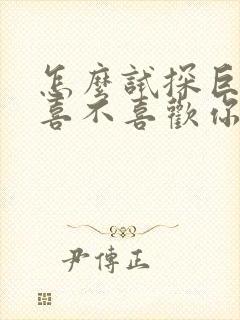 怎麼試探巨
喜不喜歡你
尹傳正